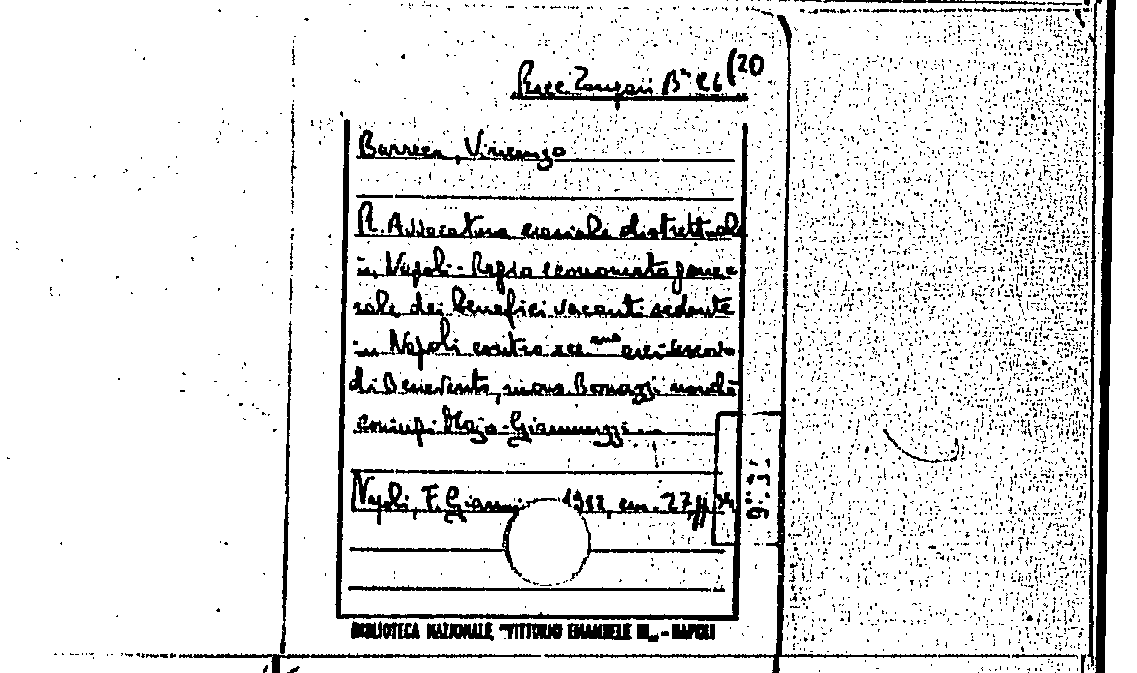 Racc. Zangari Bª 26 (20
Barrera, Vincenzo
R. Avvocatura erariale distrettuale
in Napoli - Regio economato gene-
rale dei benefici vacanti sedente
in Napoli contro ecc.mo arcivescovo
di Benevento, mons. Bonazzi nonchè
coniugi Majo-Giannuzzi.
Napoli, F. Giannini 19 2, cm. 27, pp.
BIBLIOTECA NAZIONALE "VITTORIO EMANUELE III" - NAPOLI